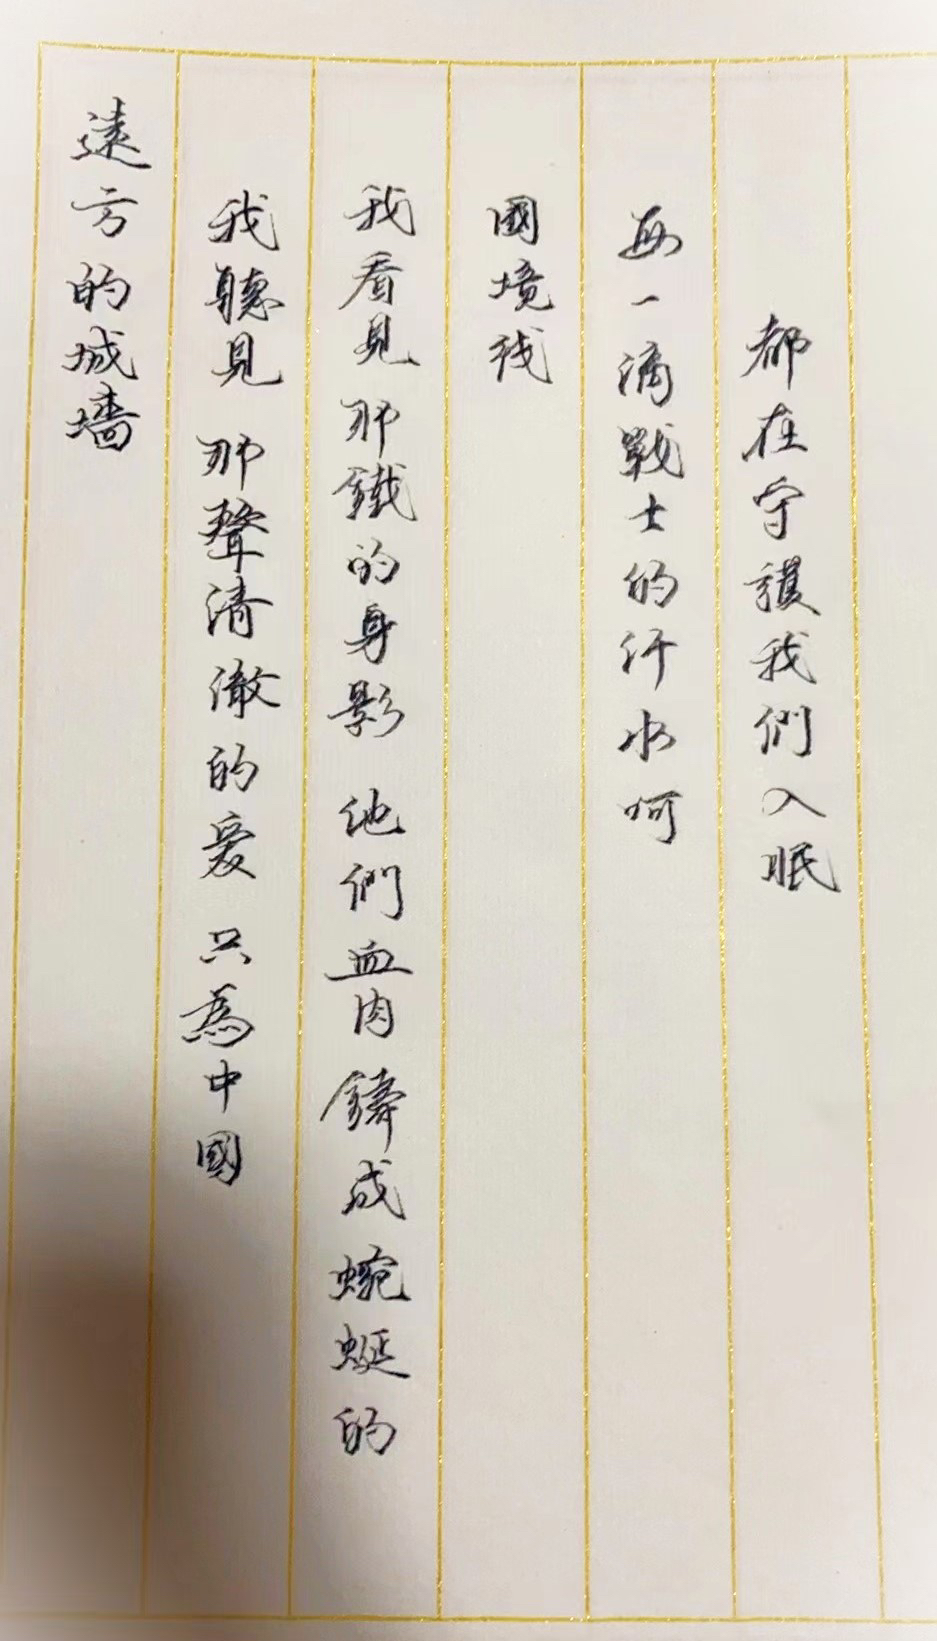 遠方的城墻
我聽見 那聲清澈的爱 只為中國
我看見 那鐵的身影 他們血肉鑄成蜿蜒的
國境线
每一滴戰士的汗水呵
都在守護我們入眠